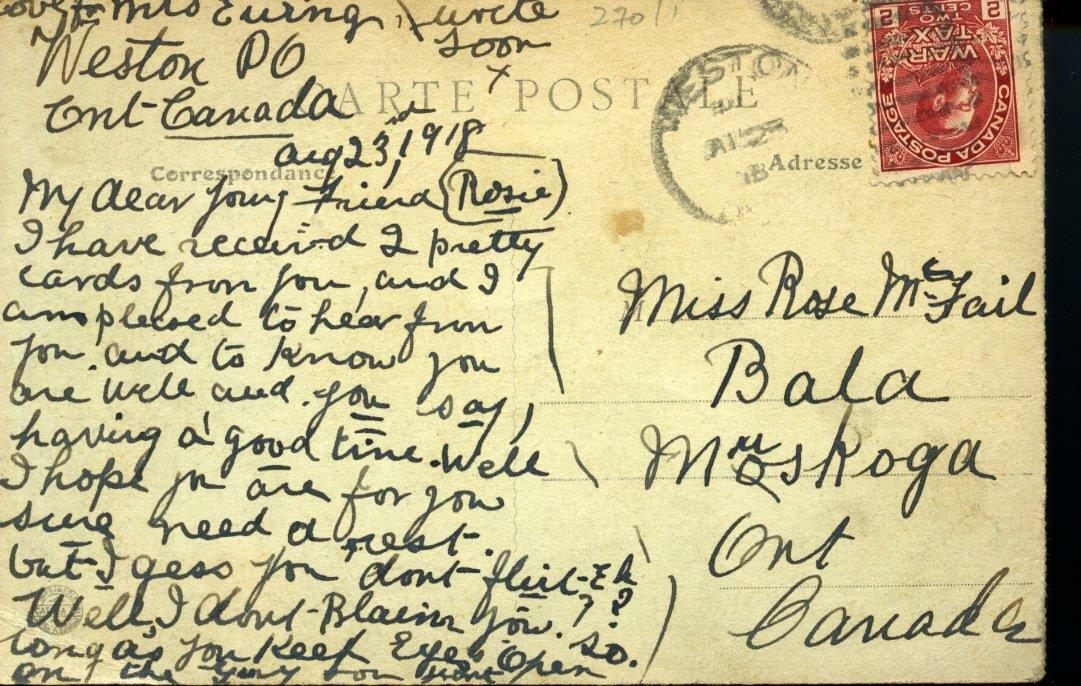 love to Mrs Ewing, write
soon
x
270/1
Weston PO
Ont-Canada
Aug 23rd, 1918
CARTE POSTALE
Correspondance
Adresse
My dear Young Friend (Rosie)
I have received 2 pretty
cards from you, and I
am pleased to hear from
you. and to know you
are well and. you say,
having a good time. Well
I hope you are for you
sure need a rest.
but I gess you dont flirt-Eh
? ?
Well, I dont-Blame you. so
long as you Keep Eyes Open
on the you
Miss Rose McFail
Bala
Muskoga
Ont
Canada
WESTO
AU 23
18
CANADA POSTAGE
WAR
TAX
TWO
CENTS
2 2